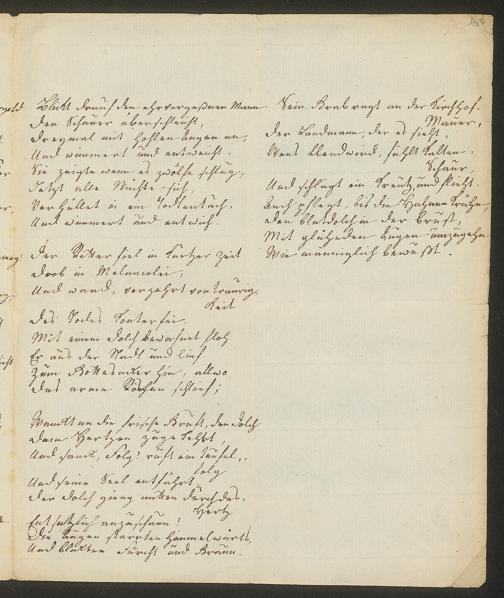 164
Blickt drauf den ehrvergeßnen Mann
Den Schauer überschleicht,
Dreymal mit hohlen Augen an,
Und wimmert und entweicht.
Sie zeigte wenn es zwölfe schlug,
Jetzt alle Nächte sich,
Verhüllet in ein Todtentuch,
Und wimmert und entwich.
Der Ritter fiel in kurzer Zeit
Drob in Melancolei,
Und ward, verzehrt von Traurig
keit
Des Todes Konterfei.
Mit einem Dolch bewafnet floh
Er aus der Stadt und lief
Zum Gottesacker hin, allwo
Das arme Röschen schlief;
Wandt an die frische Gruft, den Dolch
Dem Hertzen zugekehrt,
Und sank, Solg! ruft ein Teufel,
Und seine Seel entführt.
Der Dolch gieng mitten durch das
Hertz
Entsetzlich anzuschaun!
Die Augen starrten Himmelwärts,
Und blickten Furcht und Graun.
Sein Grab ragt an der Kirchhof
Mauer,
Der Landmann, der es sieht,
Wens Abend wird, fühlt kalten
Schauer,
Und schlägt ein Kreutz und flieht.
Auch pflegt, bis die Hahnen krähn,
Den Blutdolch in der Brust,
Mit glühenden Augen umzugehn
Wie männiglich bewußt.